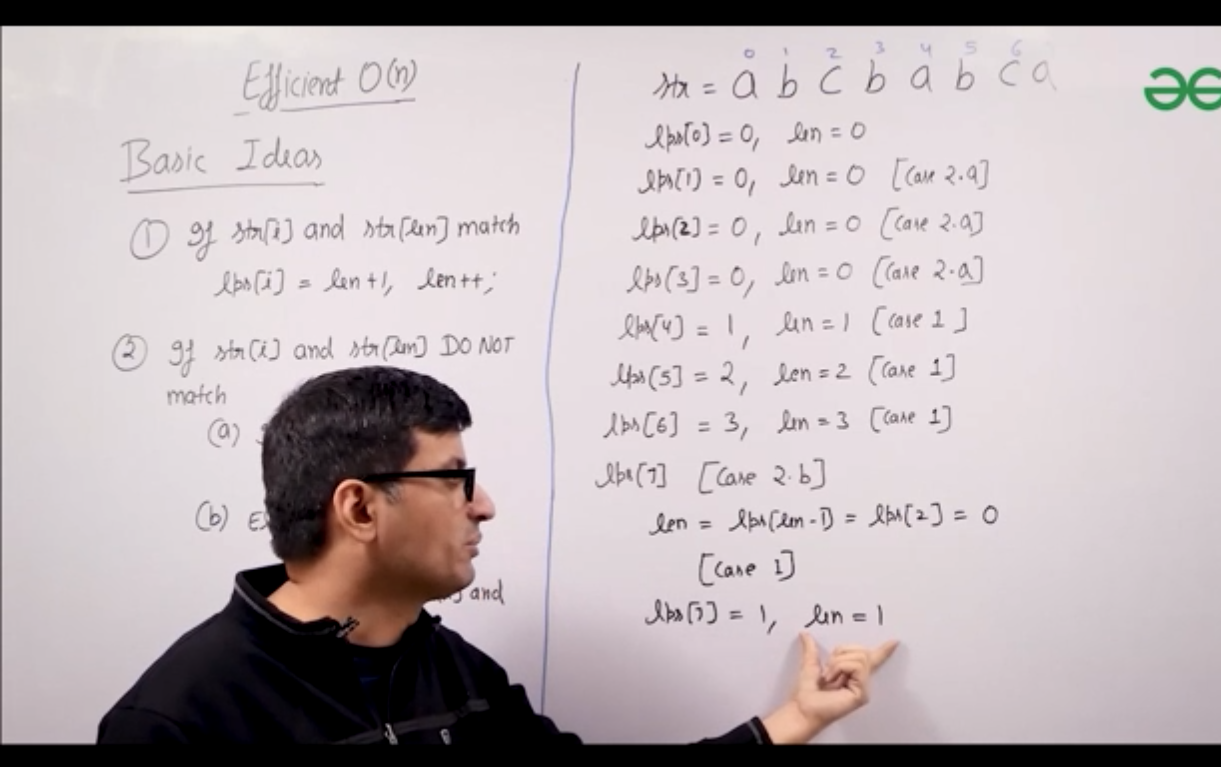 Efficient O(n)
Basic Ideas
① If str[i] and str[len] match
lps[i] = len+1, len++;
② If str[i] and str[len] DO NOT
match
(a)
(b)
and
0 1 2 3 4 5 6
str = a b c b a b c a
lps[0] = 0, len = 0
lps[1] = 0, len = 0 [Case 2.a]
lps[2] = 0, len = 0 [Case 2.a]
lps[3] = 0, len = 0 [Case 2.a]
lps[4] = 1, len = 1 [Case 1]
lps[5] = 2, len = 2 [Case 1]
lps[6] = 3, len = 3 [Case 1]
lps[7] [Case 2.b]
len = lps[len-1] = lps[2] = 0
[Case 1]
lps[7] = 1, len = 1